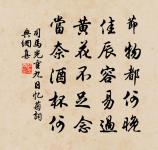 節物都何晚
佳辰容易過
黃花不足念
當奈酒杯何
司馬光重九日憶菊詞
典網